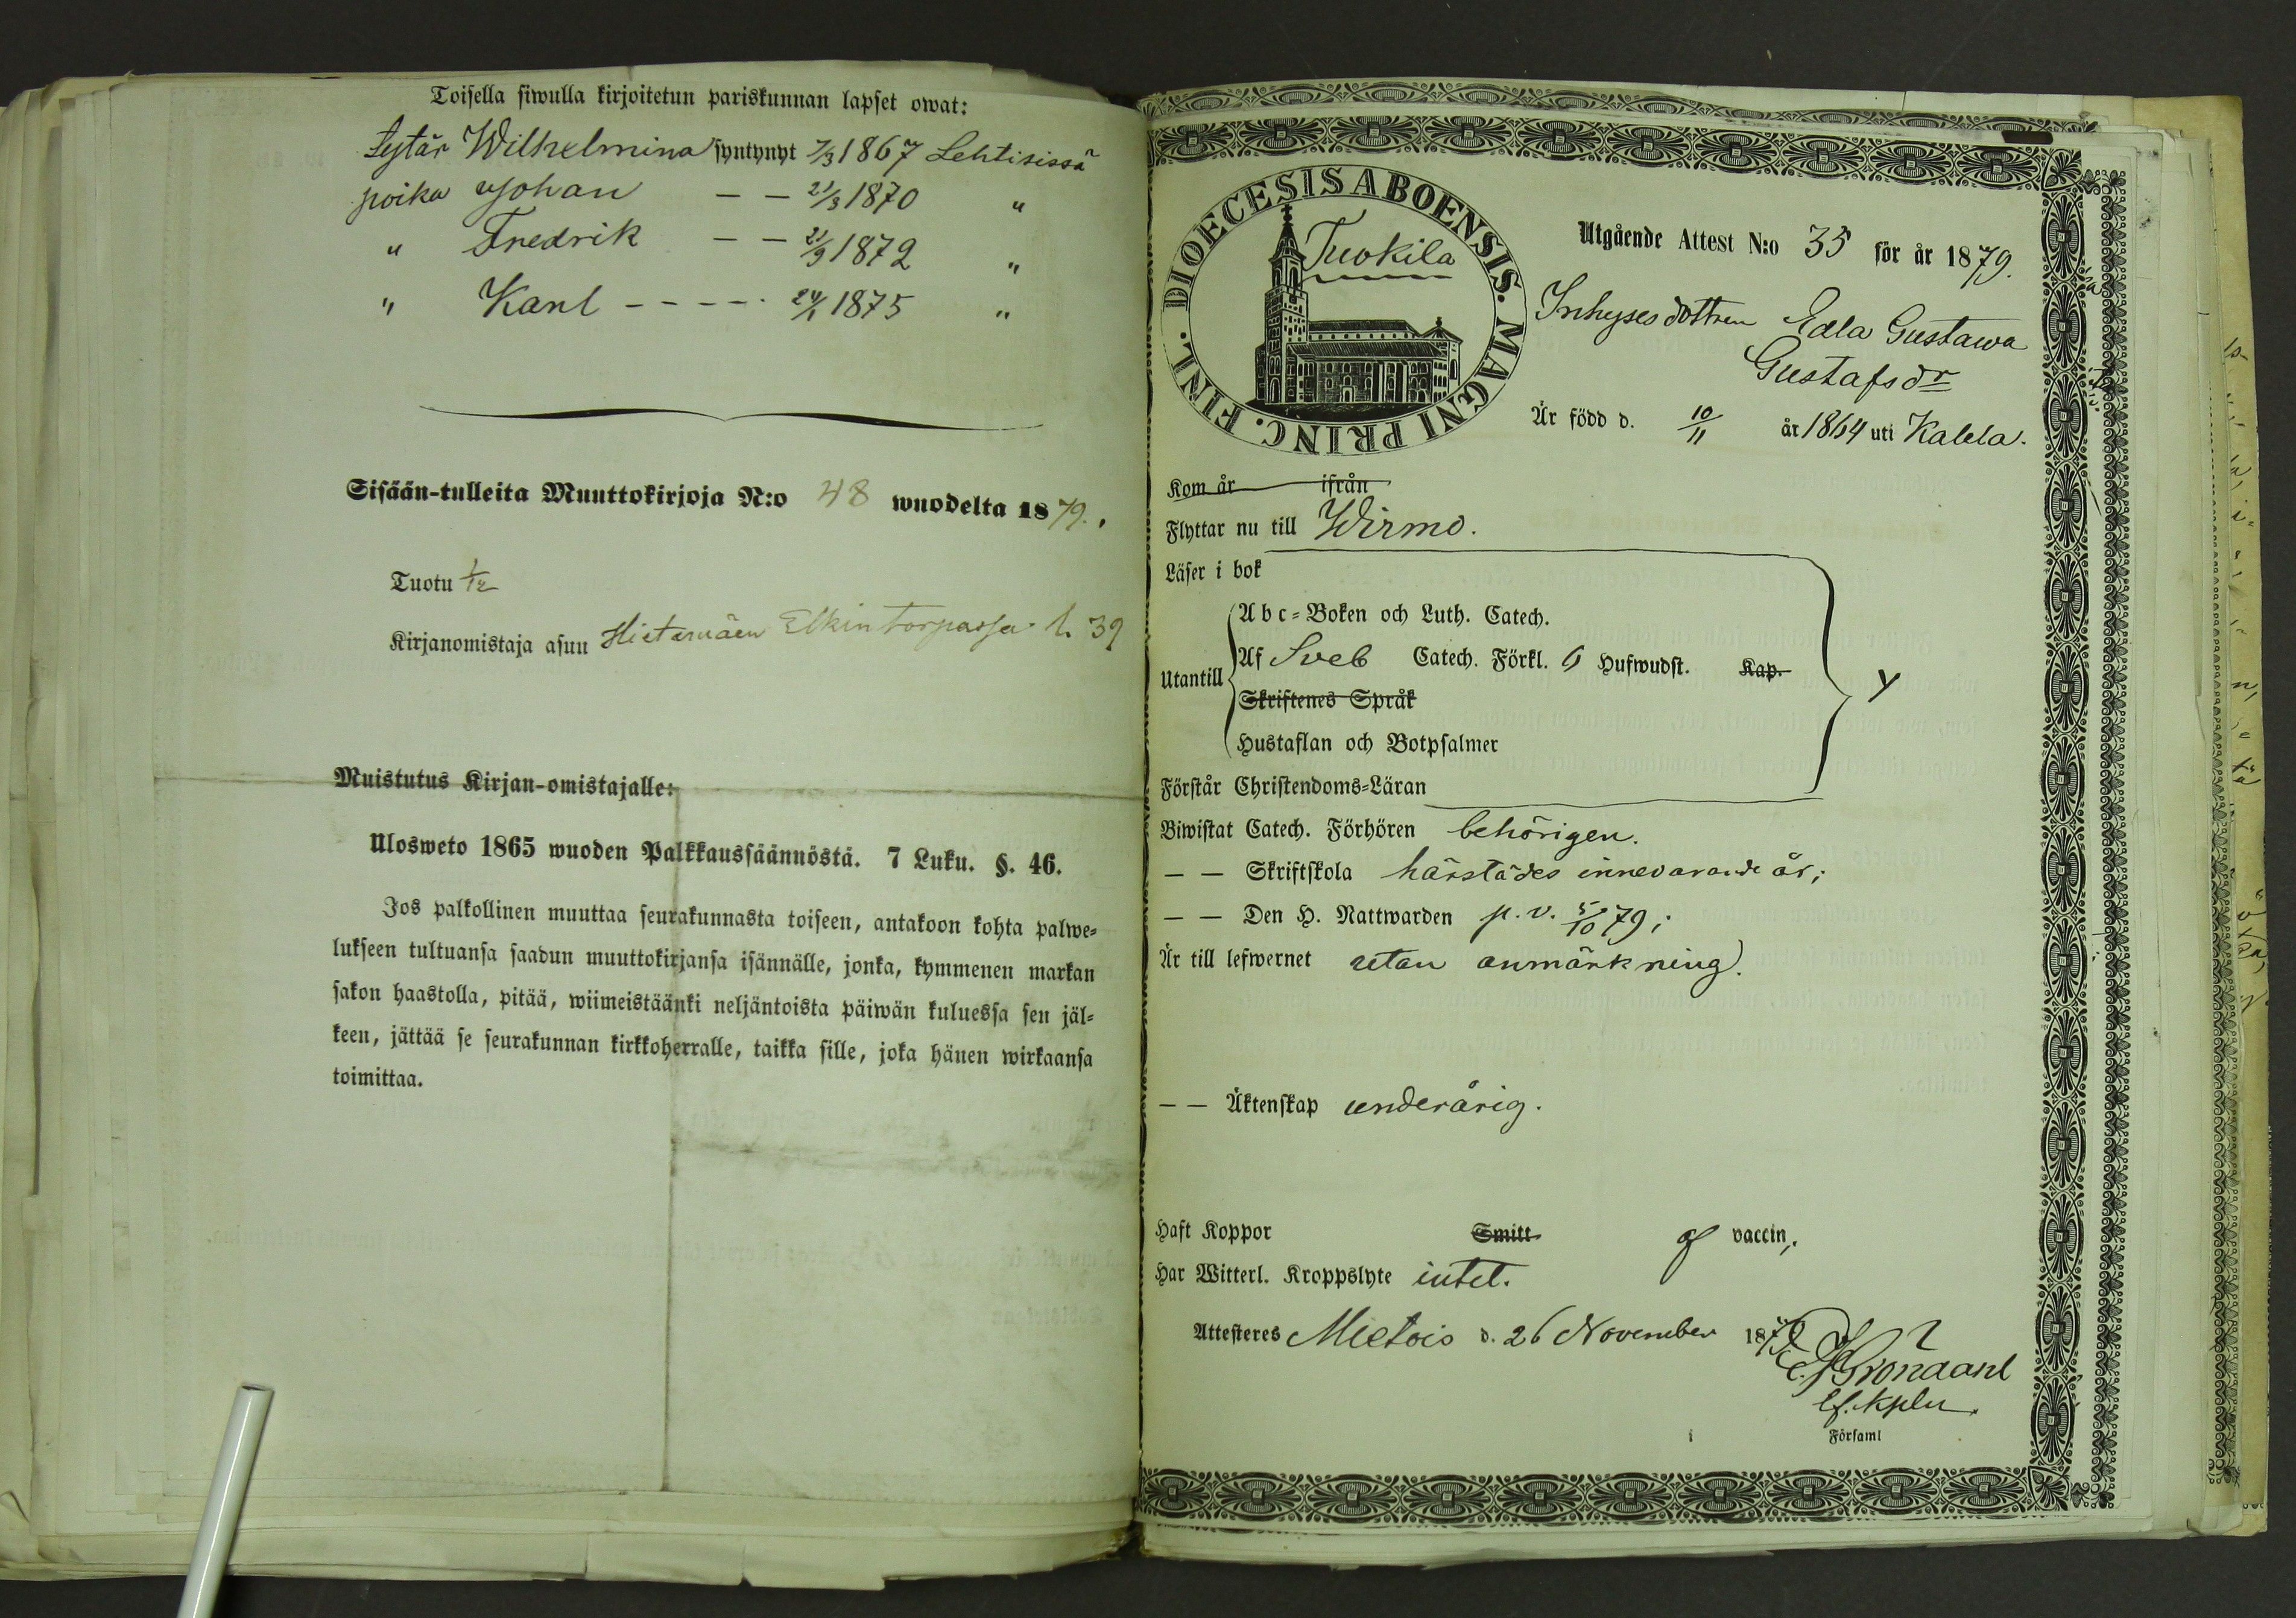 Toisella siwulla kirjoitetun pariskunnan lapset owat:
tytär Wilhelmina syntynyt 7/3 1867 Lehtisissä
poika Johan — — 21/3 1870 "
" Fredrik — — 21/9 1872 "
" Karl - - - - 24/1 1875 "
Sisään-tulleita Muuttokirjoja N:o 48 wuodelta 1879.
Tuotu 1/12
Kirjanomistaja asuu Hietamäen torpassa 39
Muistutus Kirjan-omistajalle:
Ulosweto 1865 wuoden Palkkaussäännöstä. 7 Luku. §. 46.
Jos palkollinen muuttaa seurakunnasta toiseen, antakoon kohta palwe=
lukseen tultuansa saadun muuttokirjansa isännälle, jonka, kymmenen markan
sakon haastolla, pitää, wiimeistäänki neljäntoista päiwän kuluessa sen jäl=
keen, jättää se seurakunnan kirkkoherralle, taikka sille, joka hänen wirkaansa
toimittaa.
DIOECESIS ABOENSIS. MAGNI PRINC. FINL.
Tuokila
Utgående Attest N:o 35 för år 1879.
Inhyses dottren Edla Gustawa
Gustafsdr
Är född d. 10/11 år 1864 uti Kalela.
Kom år ifrån
Flyttar nu till Wirmo.
Läser i bok
Abc=Boken och Luth. Catech.
Utantill Af Sveb Catech. Förkl. 6 Hufwudst. Kap.
Skriftenes Språk
Hustaflan och Botpsalmer
Förstår Christendoms=Läran
Biwistat Catech. Förhören behörigen.
— — Skriftskola härstädes innevarande år;
— — Den H. Nattwarden p. v. 5/10 79;
Är till lefwernet utan anmärkning.
— — Äktenskap underårig.
Haft Koppor Smitt af vaccin,
Har Witterl. Kroppslyte intet.
Attesteres Mietois d. 26 November 1879
Ef. kpln.
i Församl